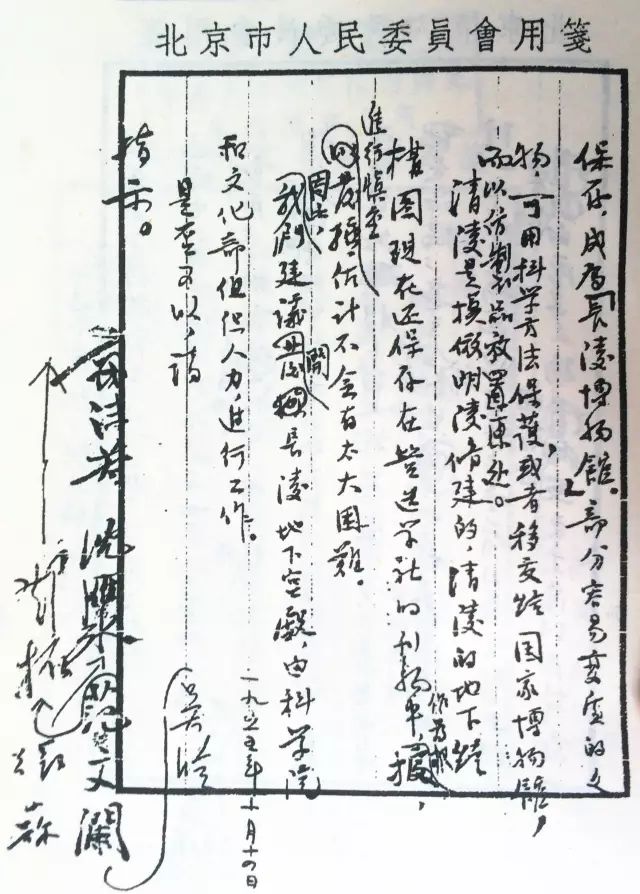 北京市人民委員會用箋
保存，成为長陵博物舘。一部分容易变质的文
物，可用科学方法保護，或者移交给国家博物舘，
而以仿製品放置原处。
清陵是摸倣明陵修建的，清陵的地下結
構图现在还保存在营造学社的刊物中，作为根
進行慎重
的发掘，估计不会有太大困難。
因此，
我们建議開
長陵地下宫殿，由科学院
和文化部组织人力進行工作。
是否可以，请
指示。
一九五五年十月十四日
郭沫若 沈雁冰 范文瀾
吴晗
鄧拓
張蘇